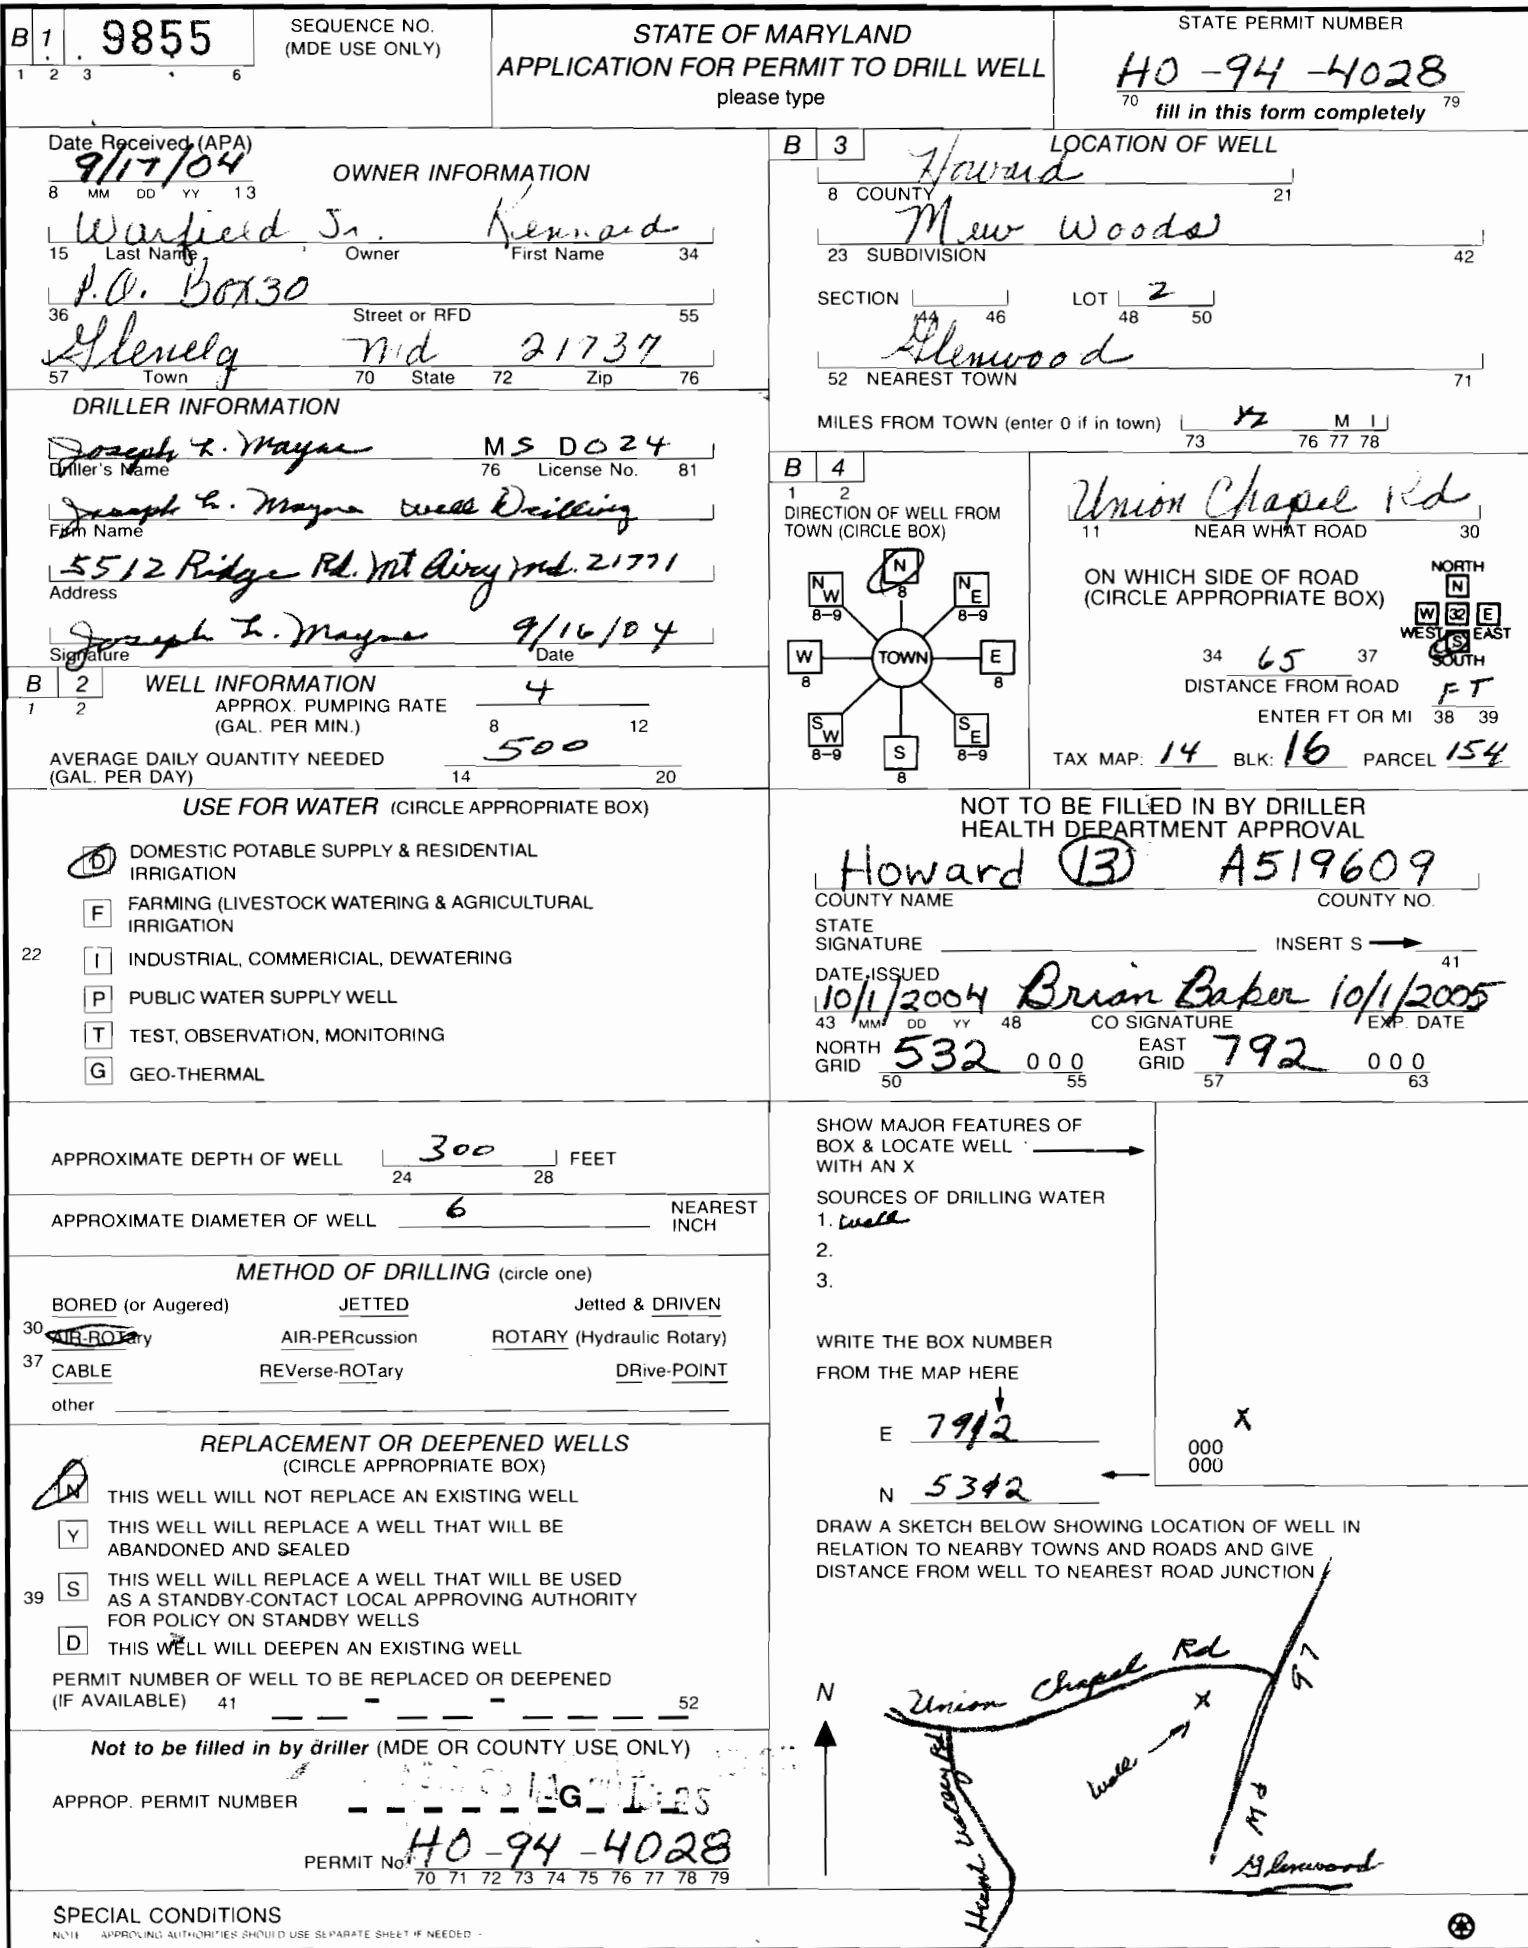 B 1 9855
1 2 3 6
SEQUENCE NO.
(MDE USE ONLY)
STATE OF MARYLAND
APPLICATION FOR PERMIT TO DRILL WELL
please type
STATE PERMIT NUMBER
HO - 94 - 4028
70 79
fill in this form completely
Date Received (APA)
9/17/04
8 MM DD YY 13
OWNER INFORMATION
Warfield Jr. Kennard
15 Last Name Owner First Name 34
P.O. Box 30
36 Street or RFD 55
Glenelg Md 21737
57 Town 70 State 72 Zip 76
DRILLER INFORMATION
Joseph L. Mayne MS D024
Driller's Name 76 License No. 81
Joseph L. Mayne Well Drilling
Firm Name
5512 Ridge Rd. Mt Airy Md. 21771
Address
Joseph L. Mayne 9/16/04
Signature Date
B 2 WELL INFORMATION
1 2
APPROX. PUMPING RATE 4
(GAL. PER MIN.) 8 12
AVERAGE DAILY QUANTITY NEEDED 500
(GAL. PER DAY) 14 20
USE FOR WATER (CIRCLE APPROPRIATE BOX)
D DOMESTIC POTABLE SUPPLY & RESIDENTIAL
IRRIGATION
F FARMING (LIVESTOCK WATERING & AGRICULTURAL
IRRIGATION
22 I INDUSTRIAL, COMMERICIAL, DEWATERING
P PUBLIC WATER SUPPLY WELL
T TEST, OBSERVATION, MONITORING
G GEO-THERMAL
APPROXIMATE DEPTH OF WELL 300 FEET
24 28
APPROXIMATE DIAMETER OF WELL 6 NEAREST
INCH
METHOD OF DRILLING (circle one)
BORED (or Augered) JETTED Jetted & DRIVEN
30 AIR-ROTary AIR-PERcussion ROTARY (Hydraulic Rotary)
37 CABLE REVerse-ROTary DRive-POINT
other
REPLACEMENT OR DEEPENED WELLS
(CIRCLE APPROPRIATE BOX)
N THIS WELL WILL NOT REPLACE AN EXISTING WELL
Y THIS WELL WILL REPLACE A WELL THAT WILL BE
ABANDONED AND SEALED
39 S THIS WELL WILL REPLACE A WELL THAT WILL BE USED
AS A STANDBY-CONTACT LOCAL APPROVING AUTHORITY
FOR POLICY ON STANDBY WELLS
D THIS WELL WILL DEEPEN AN EXISTING WELL
PERMIT NUMBER OF WELL TO BE REPLACED OR DEEPENED
(IF AVAILABLE) 41 - - 52
Not to be filled in by driller (MDE OR COUNTY USE ONLY)
APPROP. PERMIT NUMBER G
PERMIT No. HO - 94 - 4028
70 71 72 73 74 75 76 77 78 79
SPECIAL CONDITIONS
NOTE APPROVING AUTHORITIES SHOULD USE SEPARATE SHEET IF NEEDED -
B 3 LOCATION OF WELL
Howard
8 COUNTY 21
Mew Woods
23 SUBDIVISION 42
SECTION LOT 2
44 46 48 50
Glenwood
52 NEAREST TOWN 71
MILES FROM TOWN (enter 0 if in town) 1/2 M I
73 76 77 78
B 4
1 2
DIRECTION OF WELL FROM
TOWN (CIRCLE BOX)
N
8
NW
8-9
NE
8-9
W
8
TOWN
E
8
SW
8-9
SE
8-9
S
8
Union Chapel Rd
11 NEAR WHAT ROAD 30
ON WHICH SIDE OF ROAD
(CIRCLE APPROPRIATE BOX)
NORTH
N
W 32 E
WEST S EAST
SOUTH
34 65 37
DISTANCE FROM ROAD FT
ENTER FT OR MI 38 39
TAX MAP: 14 BLK: 16 PARCEL 154
NOT TO BE FILLED IN BY DRILLER
HEALTH DEPARTMENT APPROVAL
Howard 13 A519609
COUNTY NAME COUNTY NO.
STATE
SIGNATURE INSERT S
41
DATE ISSUED
10/1/2004 Brian Baker 10/1/2005
43 MM DD YY 48 CO SIGNATURE EXP. DATE
NORTH GRID 532 000 EAST GRID 792 000
50 55 57 63
SHOW MAJOR FEATURES OF
BOX & LOCATE WELL
WITH AN X
SOURCES OF DRILLING WATER
1. well
2.
3.
WRITE THE BOX NUMBER
FROM THE MAP HERE
E 792
N 532
X
000
000
DRAW A SKETCH BELOW SHOWING LOCATION OF WELL IN
RELATION TO NEARBY TOWNS AND ROADS AND GIVE
DISTANCE FROM WELL TO NEAREST ROAD JUNCTION
N
Union Chapel Rd
97
X
Well
Valley Rd
Md
Glenwood